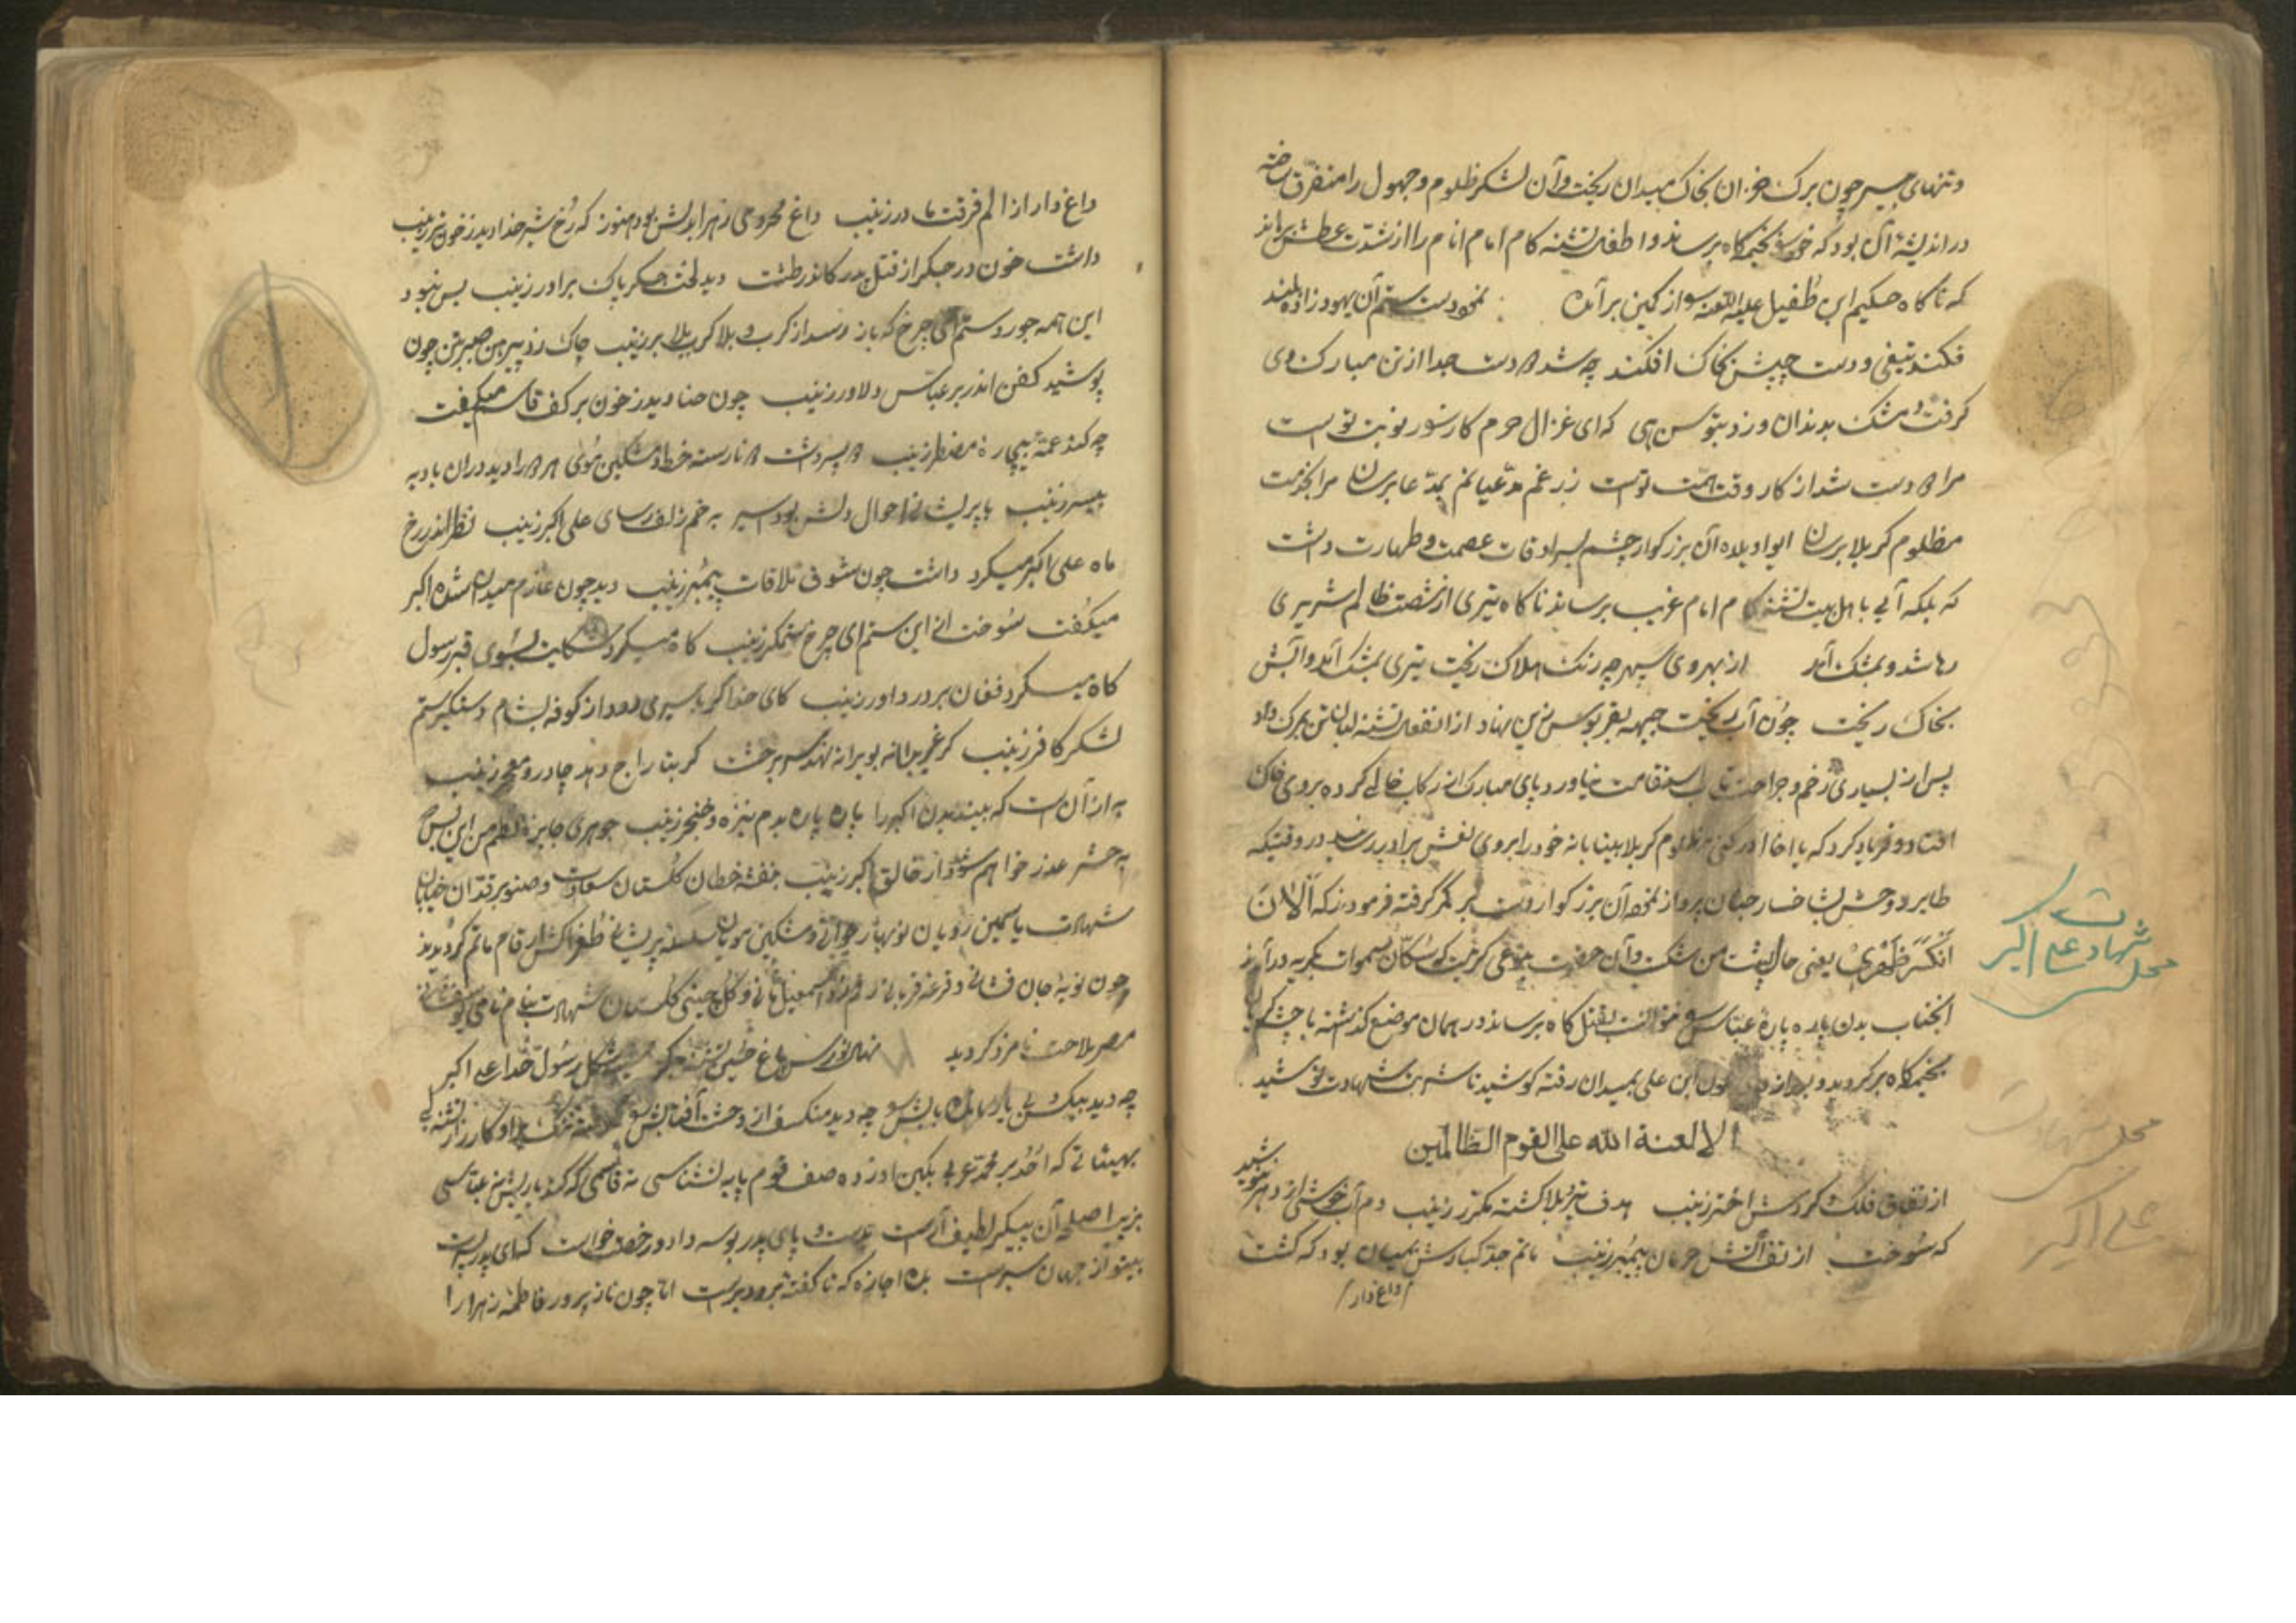 و تنهای بی سر چون برک خزان بخاک میدان ریخت و آن لشکر ظلوم و جهول را متفرق ساخته
در اندیشهٔ آن بود که خود را بخیمکاه برساند و اطفال تشنه کام امام انام را از شدت عطش برهاند
که ناکاه حکیم ابن طفیل علیه اللعنه از کمین برآمد نمود دست ستم آن یهود زاده بلند
فکند تیغی و دست چپش بخاک افکند چه شد دو دست جدا از تن مبارک وی
کرفت مشک بدندان و زد بتوسن هی که ای غزال حرم کار زور نوبت تو است
مرا دو دست شد از کار وقت همت توست ز زغم مدعیانم بمدعا برسان مرا بخدمت
مظلوم کربلا برسان ایوا ویلاه آن بزرکوار چشم بسرادقات عصمت و طهارت داشت
که بلکه آبی باهل بیت تشنه کام امام غریب برساند ناکاه تیری از شصت ظالم شریری
رها شد و بمشک آمد از بهر وی سپهر چه رنک هلاک ریخت تیری بمشک آمد و آبش
بخاک ریخت چون آب بریخت جبهه بقربوس زین نهاد از انفعال تشنه لبان تن بمرک داد
پس از بسیاری زخم و جراحت تاب استقامت نیاورد پای مبارک از رکاب خالی کرده بروی خاک
افتاد و فریاد کرد که یا اخا ادرکنی مظلوم کربلا بیتابانه خود را بروی نعش برادر رسانید در وقتیکه
طایر روحش بشاخسار جنان پرواز نمود آن بزرکوار دست بر کمر گرفته فرمودند که اَلْآنَ
اَنْکَسَرَ ظَهْری یعنی حال پشت من شکست و آن حضرت بنوعی کریست که سکان سموات بکریه درآمدند
انجناب بدن پاره پاره عباس بقتل کاه برساند در همان موضع کذشته با چشم کریان
بخیمکاه برکردید و بعد از وی عون ابن علی بمیدان رفته کوشید تا شربت شهادت نوشید
الا لعنة الله علی القوم الظالمین
از نفاق فلک و کردش اختر زینب هدف تیر بلا کشته مکرر زینب دم آب خوشی از دهر ننوشید
که سوخت از تف آتش حرمان پیمبر زینب ماتم جد کبارش بمیان بود که کشت
داغ دار
مجلس شهادت علی اکبر
مجلس شهادت
علی اکبر
داغ دار از الم فرقت مادر زینب داغ محرومی زهرا بدلش بود هنوز که رخ شیر خدا دید ز خون تر زینب
داشت خون در جکر از قتل پدر کاندر طشت دید لخت جکر پاک برادر زینب بس نبود
این همه جور و ستم ای چرخ که باز رسد از کرب و بلا کرب و بلا بر زینب چاک زد پیرهن صبر بتن چون
پوشید کفن اندر بر عباس دلاور زینب چون حنا دید ز خون بر کف قاسم میکفت
چه کند عمهٔ بیچاره مضطر زینب دو پسر داشت دو نارسته خط و مشکین موی هر دو را دید در آن بادیه
بیسر زینب با پریشانی احوال دلش بود اسیر به خم زلف رسای علی اکبر زینب نظر اندر رخ
ماه علی اکبر میکرد داشت چون شوق ملاقات پیمبر زینب دید چون عازم میدان شده اکبر
میکفت سوخت از این ستم ای چرخ ستمکر زینب کاه میکرد شکایت بسوی قبر رسول
کاه میکرد فغان بر در داور زینب کای خدا کر باسیری رود از کوفه بشام دستکیر ستم
لشکر کافر زینب کر غریبانه بویرانه نهد سر بر خشت کر بتاراج دهد چادر و معجر زینب
به از آن است که بیند بدن اکبر را پاره پاره بدم نیزه و خنجر زینب جوهری جایزهٔ نظم من این بس
به حشر عذر خواهم شود از خالق اکبر زینب بنفشه خطان کلستان سعادت و صنوبر قدان خیابان
شهادت یاسمین رویان نوبهار جوانی و مشکین مویان سلسله پریشانی طغراکش ارقام ماتم کردیدند
چون نوبهٔ جان فشانی و قرعه قربانی و کل چینی کلستان شهادت بنام نامی
مصر ملاحت نامزد کردید نهال نورس باغ حسین تشنه جکر شبیه شکل رسول خدا علی اکبر
چه دید بیکس و بی یار مانده بابش چه دید منکسف از وحشت آفتابش
بهیئتی که احد بر محمد عربی
بزیب اصلحه آن پیکر لطیف آراست بدست و پای پدر بوسه داد و رخصت خواست که ای پدر
بیتو از جهان سیر است بده اجازه که ناکفته میرود بر است اما چون ناز پرور فاطمه زهرا را